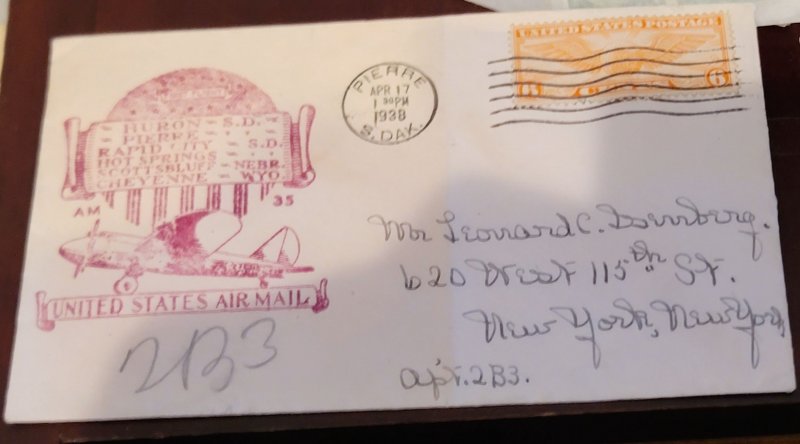 HURON - S.D.
PIERRE - " "
RAPID CITY - S.D.
HOT SPRINGS - " "
SCOTTSBLUFF - NEBR.
CHEYENNE - WYO.
AM 35
UNITED STATES AIR MAIL
2B3
PIERRE
APR 17
1 30 PM
1938
S. DAK.
UNITED STATES POSTAGE
6 6
Mr Leonard C.
620 West 115th St.
New York, New York
apt. 2B3.